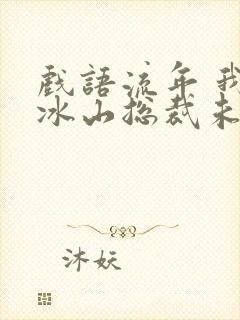 戲語流年 我
冰山总裁未
沐妖